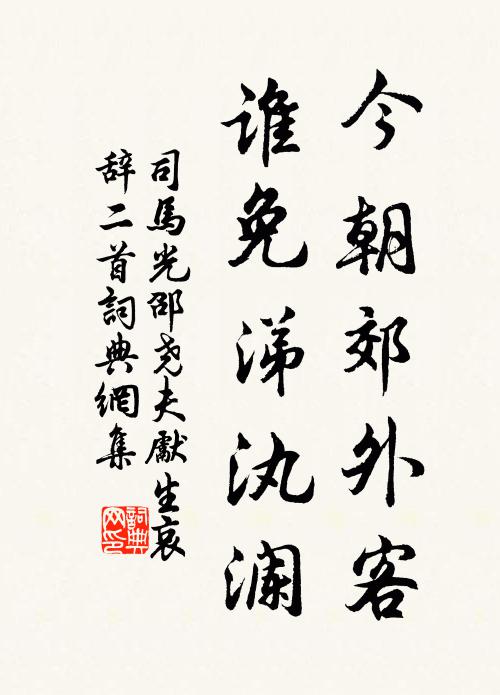 今朝郊外客
谁免涕汍澜
司馬光邵尧夫獻生哀
辞二首詞典網集
詞典
网印